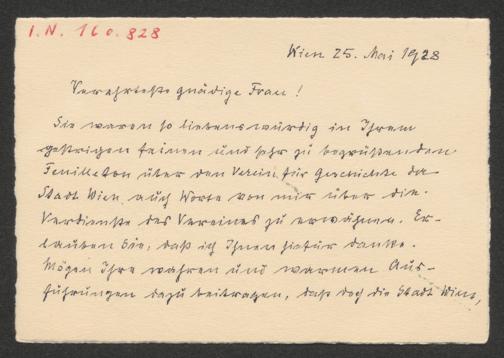 I.N. 160.828
Wien 25. Mai 1928
Verehrteste gnädige Frau!
Sie waren so liebenswürdig in Ihrem
gestrigen feinen und sehr zu begrüßenden
Feuilleton über den Verein für Geschichte der
Stadt Wien auch Worte von mir über die
Verdienste des Vereines zu erwähnen. Er-
lauben Sie, daß ich Ihnen hiefür danke.
Mögen Ihre wahren und warmen Aus-
führungen dazu beitragen, daß doch die Stadt Wien,